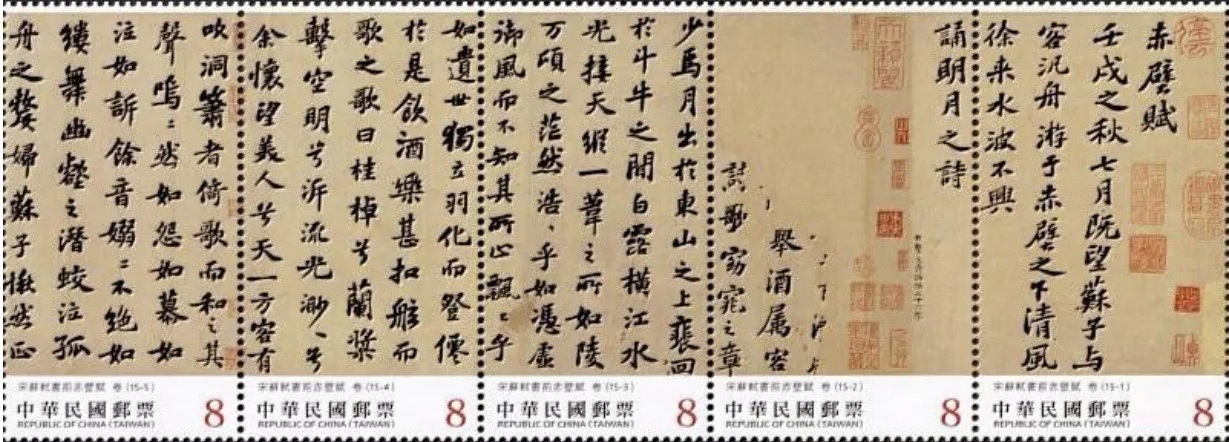 赤壁賦
壬戌之秋七月既望蘇子与
客汎舟游于赤壁之下清風
徐来水波不興
宋蘇軾書前赤壁賦 卷 (15-1)
中華民國郵票 8
REPUBLIC OF CHINA (TAIWAN)
誦明月之詩
舉酒属客
歌窈窕之章
宋蘇軾書前赤壁賦 卷 (15-2)
中華民國郵票 8
REPUBLIC OF CHINA (TAIWAN)
少焉月出於東山之上裵回
於斗牛之間白露橫江水
光接天縱一葦之所如陵
万頃之茫然浩〻乎如憑虛
御風而不知其所止飄〻乎
宋蘇軾書前赤壁賦 卷 (15-3)
中華民國郵票 8
REPUBLIC OF CHINA (TAIWAN)
如遺世獨立羽化而登僊
於是飲酒樂甚扣舷而
歌之歌曰桂棹兮蘭槳
擊空明兮泝流光渺〻兮
余懷望美人兮天一方客有
宋蘇軾書前赤壁賦 卷 (15-4)
中華民國郵票 8
REPUBLIC OF CHINA (TAIWAN)
吹洞簫者倚歌而和之其
聲嗚〻然如怨如慕如
泣如訴餘音嫋〻不絶如
縷舞幽壑之潛蛟泣孤
舟之嫠婦蘇子愀然正
宋蘇軾書前赤壁賦 卷 (15-5)
中華民國郵票 8
REPUBLIC OF CHINA (TAIWAN)